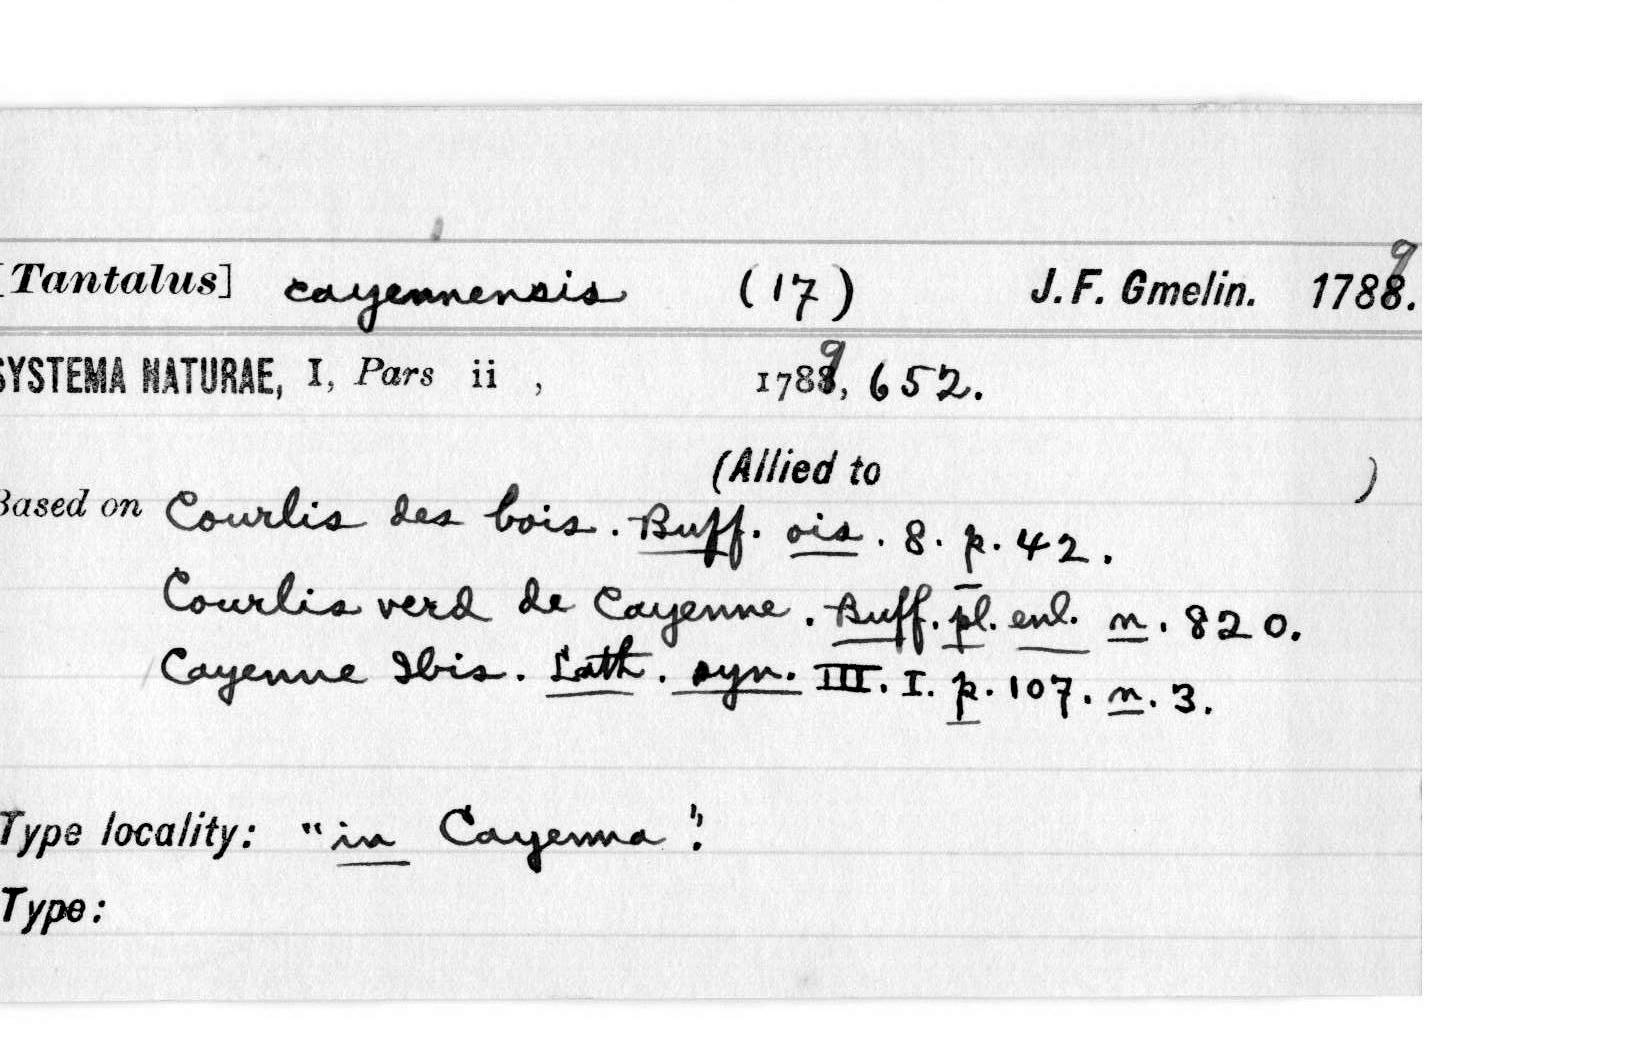 [Tantalus] cayennensis (17) J. F. Gmelin. 1788. 9
SYSTEMA NATURAE, I, Pars ii , 1788, 9 652.
(Allied to )
Based on Courlis des bois. Buff. ois. 8. p. 42.
Courlis verd de Cayenne. Buff. pl. enl. n. 820.
Cayenne Ibis. Lath. syn. III. I. p. 107. n. 3.
Type locality: "in Cayenna".
Type: